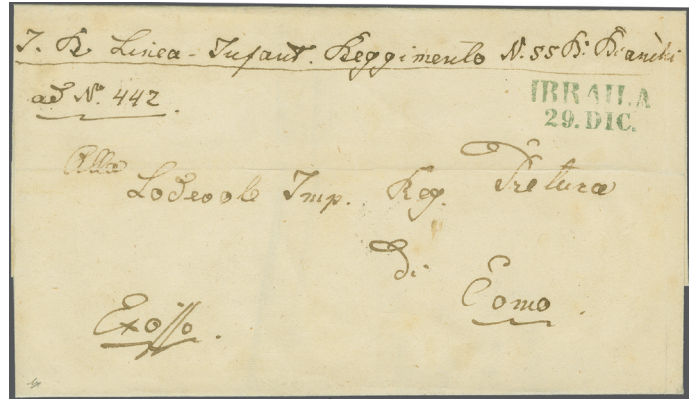 I. R. Linea-Infant. Reggimento N. 55 Br. Bianchi
ad No. 442
IBRAILA
29. DIC.
Alla
Lodevole Imp. Reg. Pretura
di
Como
Ex offo.